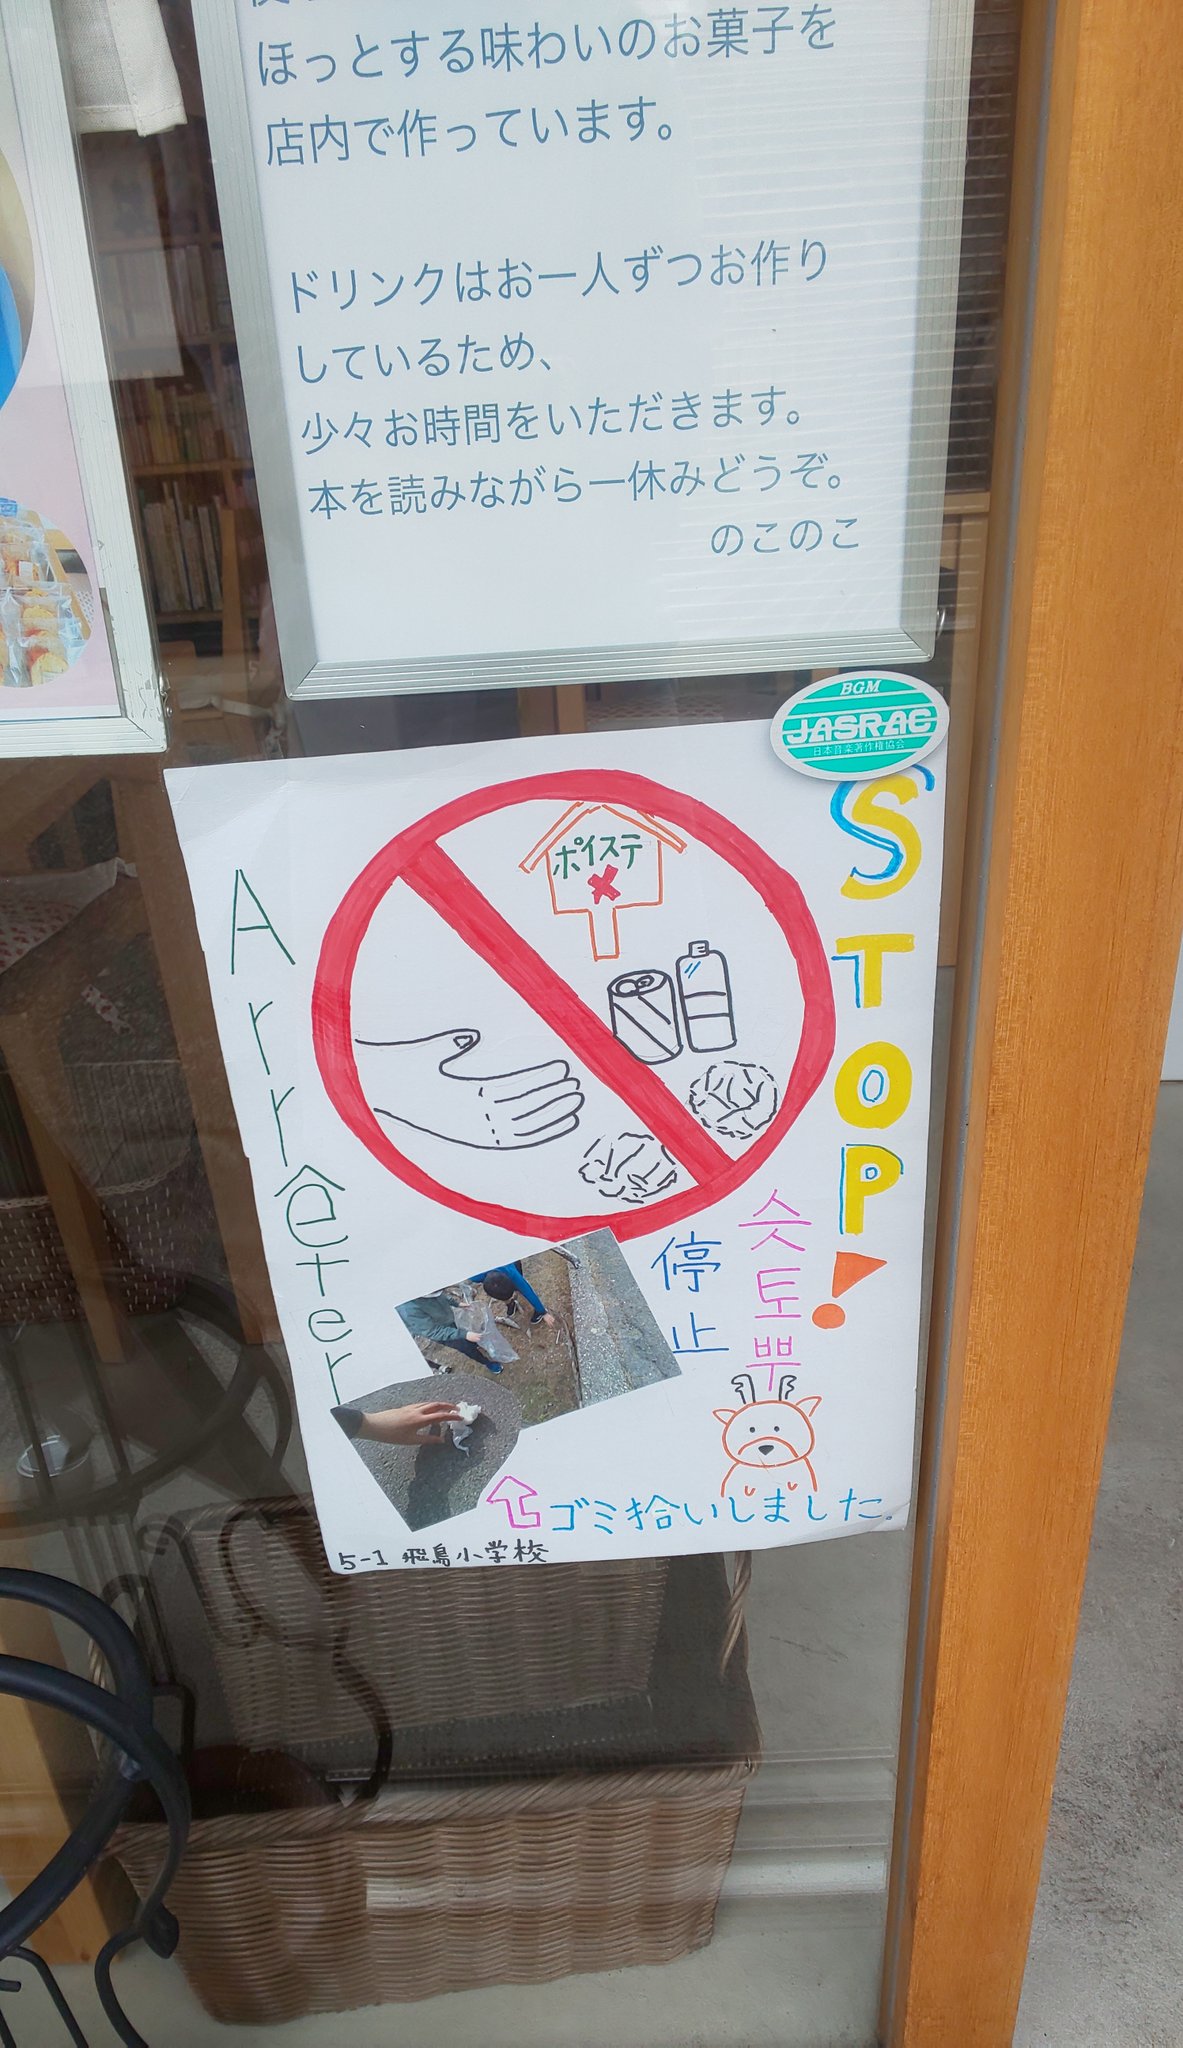 ほっとする味わいのお菓子を
店内で作っています。
ドリンクはお一人ずつお作り
しているため、
少々お時間をいただきます。
本を読みながら一休みどうぞ。
のこのこ
BGM
JASRAC
日本音楽著作権協会
STOP!
ポイステ
Arrêter
슷토뿌
停止
ゴミ拾いしました.
5-1 飛鳥小学校